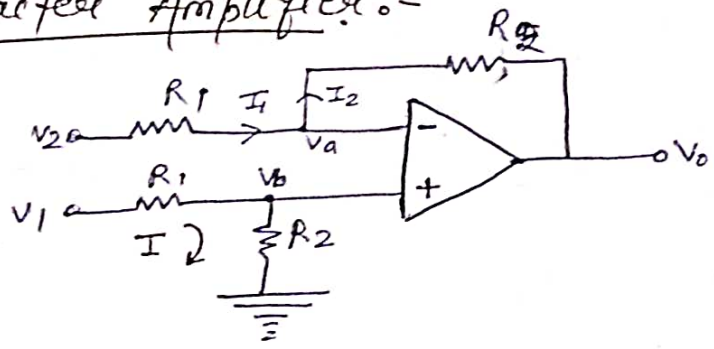 Amplifier:-
R2
R1 I1 I2
V2 Va - V0
R1 Vb +
V1 I R2